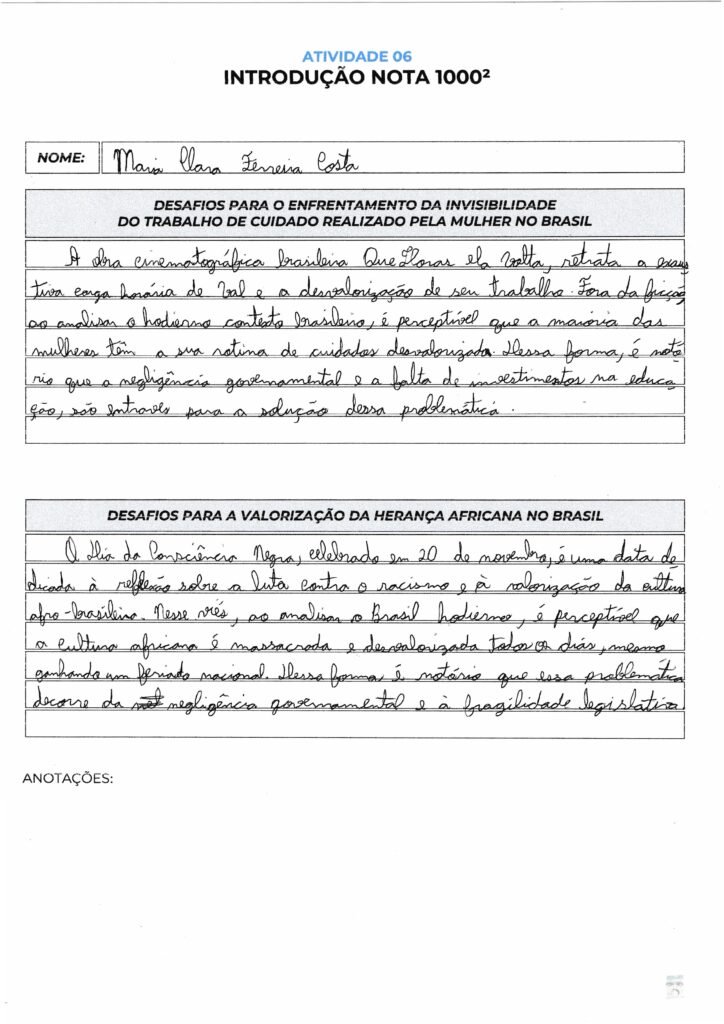 ATIVIDADE 06
INTRODUÇÃO NOTA 1000²
NOME: Maria Clara Ferreira Costa
DESAFIOS PARA O ENFRENTAMENTO DA INVISIBILIDADE
DO TRABALHO DE CUIDADO REALIZADO PELA MULHER NO BRASIL
A obra cinematográfica brasileira Que Horas ela Volta, retrata a exaus
tiva carga horária de Val e a desvalorização de seu trabalho. Fora da ficção,
ao analisar o hodierno contexto brasileiro, é perceptível que a maioria das
mulheres têm a sua rotina de cuidados desvalorizada. Dessa forma, é notó
rio que a negligência governamental e a falta de investimentos na educa
ção, são entraves para a solução dessa problemática.
DESAFIOS PARA A VALORIZAÇÃO DA HERANÇA AFRICANA NO BRASIL
O Dia da Consciência Negra, celebrado em 20 de novembro, é uma data de
dicada à reflexão sobre a luta contra o racismo e à valorização da cultura
afro-brasileira. Nesse viés, ao analisar o Brasil hodierno, é perceptível que
a cultura africana é massacrada e desvalorizada todos os dias, mesmo
ganhando um feriado nacional. Dessa forma é notório que essa problemática
decorre da negligência governamental e à fragilidade legislativa
ANOTAÇÕES: